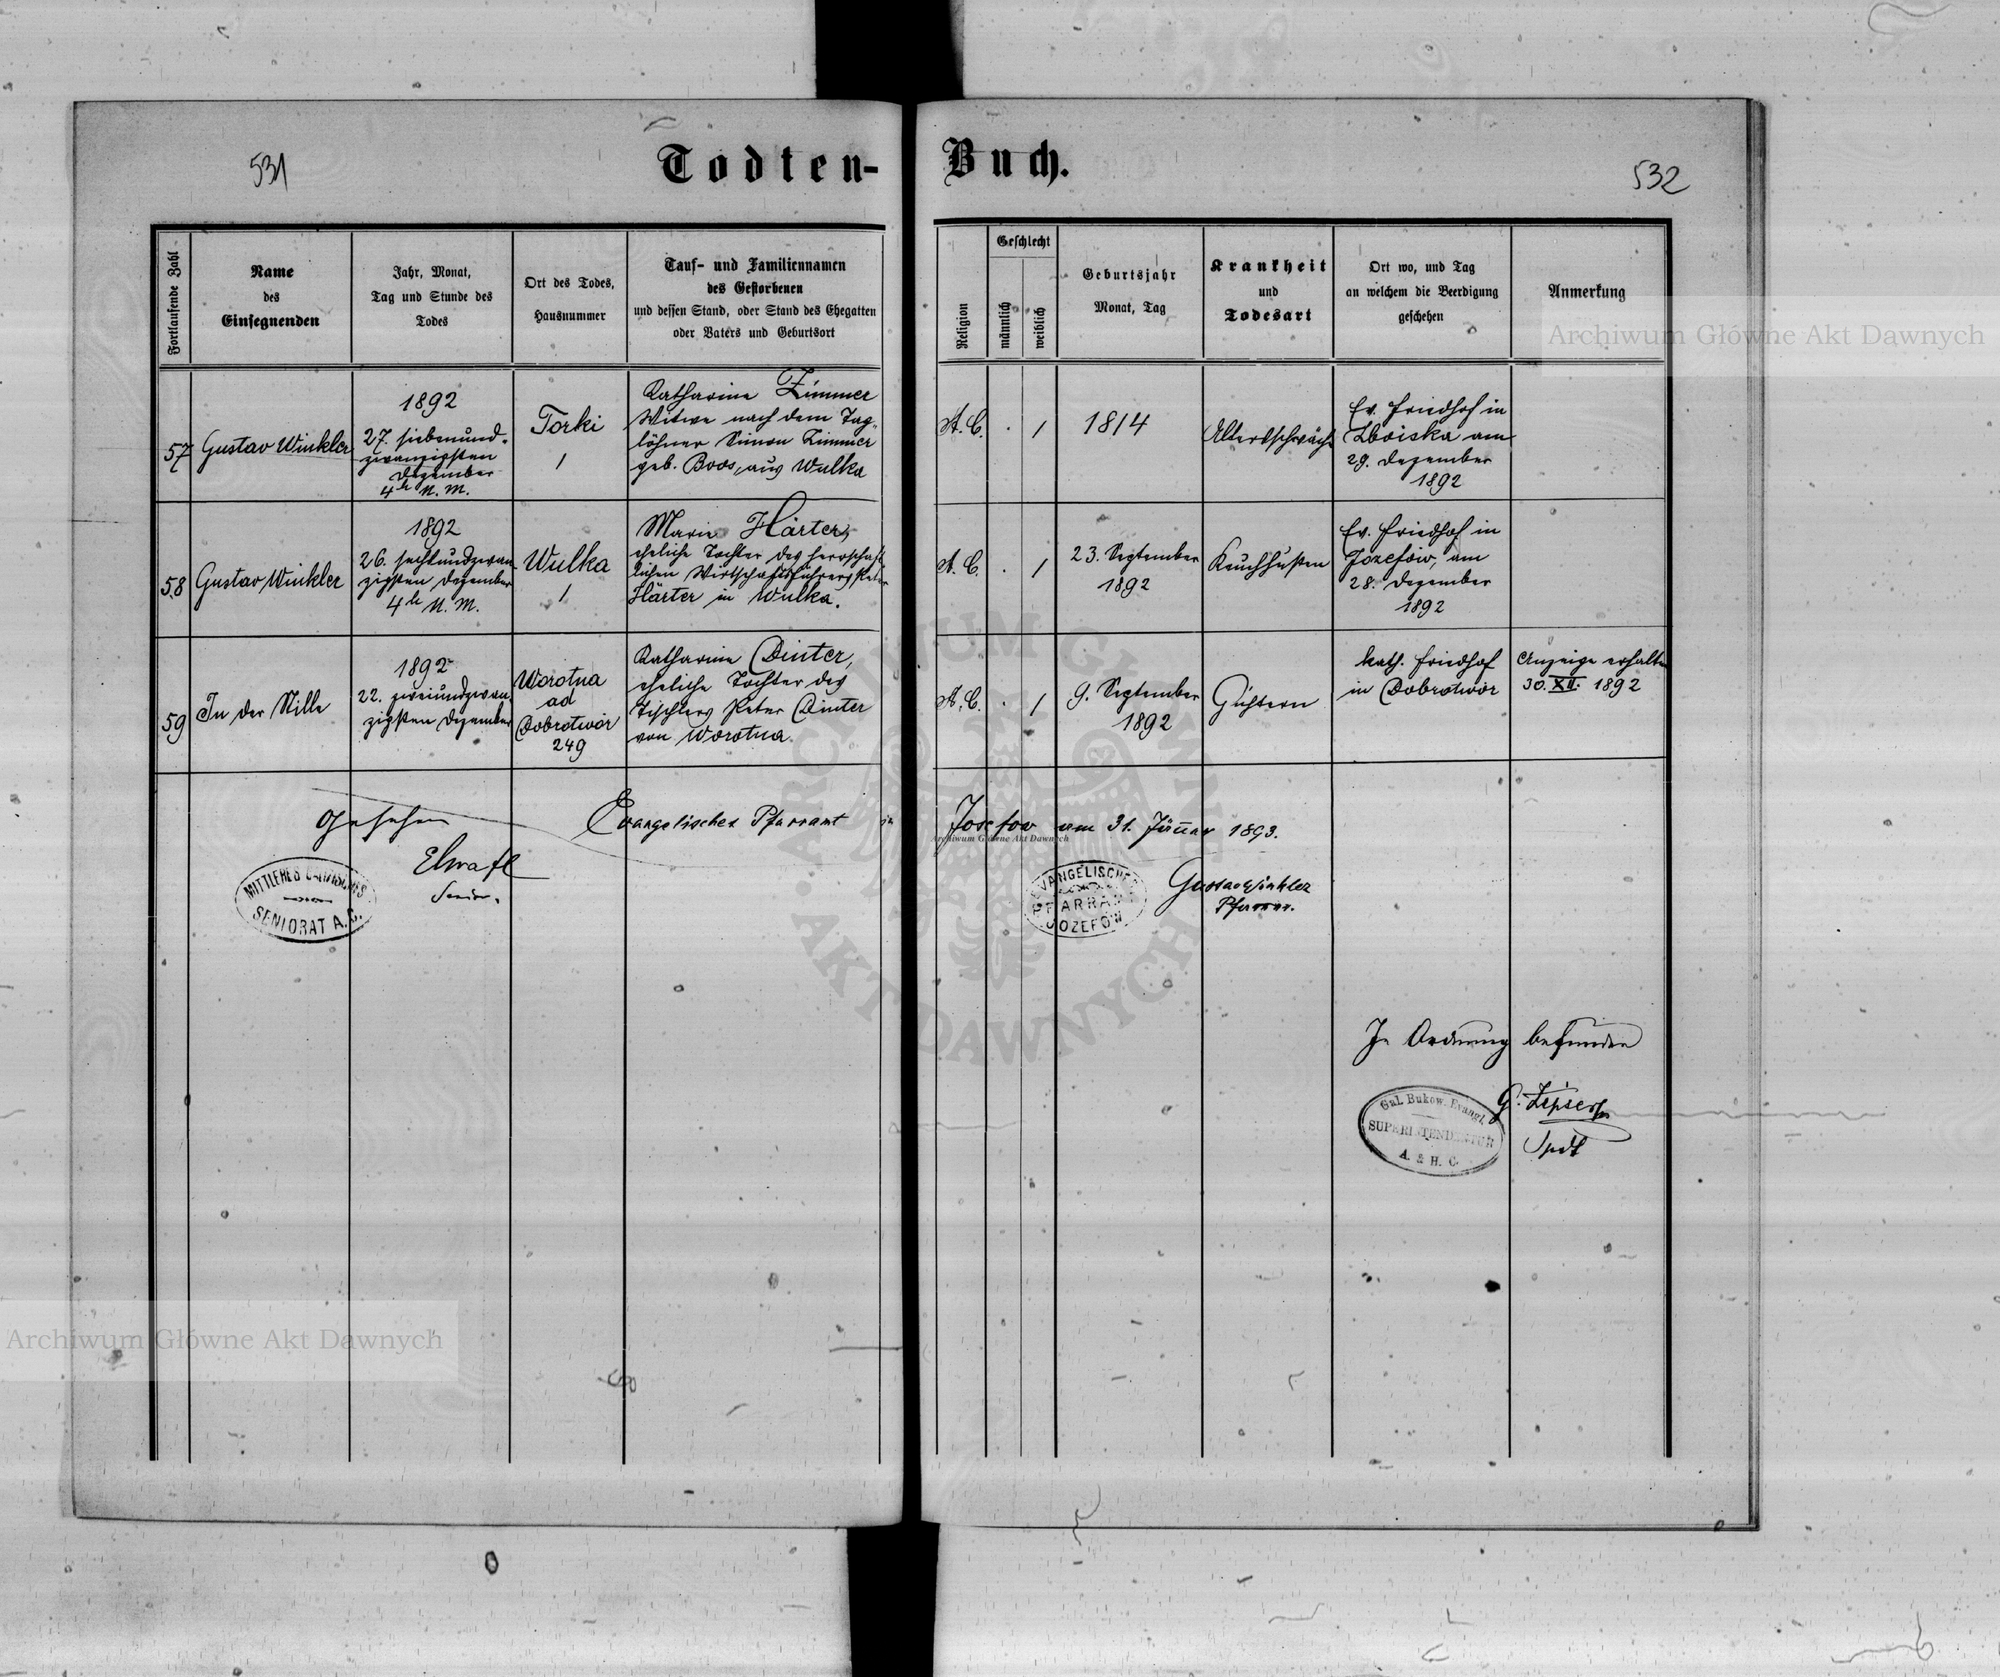 531
Todten-
Buch.
532
Fortlaufende Zahl
Name
des
Einsegnenden
Jahr, Monat,
Tag und Stunde des
Todes
Ort des Todes,
Hausnummer
Tauf- und Familiennamen
des Gestorbenen
und dessen Stand, oder Stand des Ehegatten
oder Vaters und Geburtsort
Religion
Geschlecht
männlich
weiblich
Geburtsjahr
Monat, Tag
Krankheit
und
Todesart
Ort wo, und Tag
an welchem die Beerdigung
geschehen
Anmerkung
57
Gustav Winkler
1892
27. siebenund-
zwanzigsten
Dezember
4h N. M.
Torki
1
Katharina Zimmer
Witwe nach dem Tag-
löhner Simon Zimmer
geb. Boos, aus Wulka
A. C.
.
1
1814
Altersschwäche
Ev. Friedhof in
Zboiska am
29. Dezember
1892
58
Gustav Winkler
1892
26. sechsundzwan-
zigsten Dezember
4h N. M.
Wulka
1
Marie Härter,
eheliche Tochter des herrschaft-
lichen Wirtschaftsführers Peter
Härter in Wulka.
A. C.
.
1
23. September
1892
Keuchhusten
Ev. Friedhof in
Józefów, am
28. Dezember
1892
59
In der Stille
1892
22. zweiundzwan-
zigsten Dezember
Worotna
ad
Dobrotwór
249
Katharina Dinter,
eheliche Tochter des
Tischlers Peter Dinter
von Worotna.
A. C.
.
1
9. September
1892
Gichtern
kath. Friedhof
in Dobrotwór
Anzeige erhalten
30. XII. 1892
Gesehen
Senior.
MITTLERES GALIZISCHES
SENIORAT A. C.
Evangelisches Pfarramt in
Josefow am 31. Jänner 1893.
EVANGELISCHES
PFARRAMT
JÓZEFÓW
Gustav Winkler
Pfarrer.
In Ordnung befunden
Gal. Bukow. Evangl.
SUPERINTENDENTUR
A. & H. C.
G. Zipser
Spdt
Archiwum Główne Akt Dawnych
Archiwum Główne Akt Dawnych
Archiwum Główne Akt Dawnych
ARCHIWUM GŁÓWNE
AKT DAWNYCH